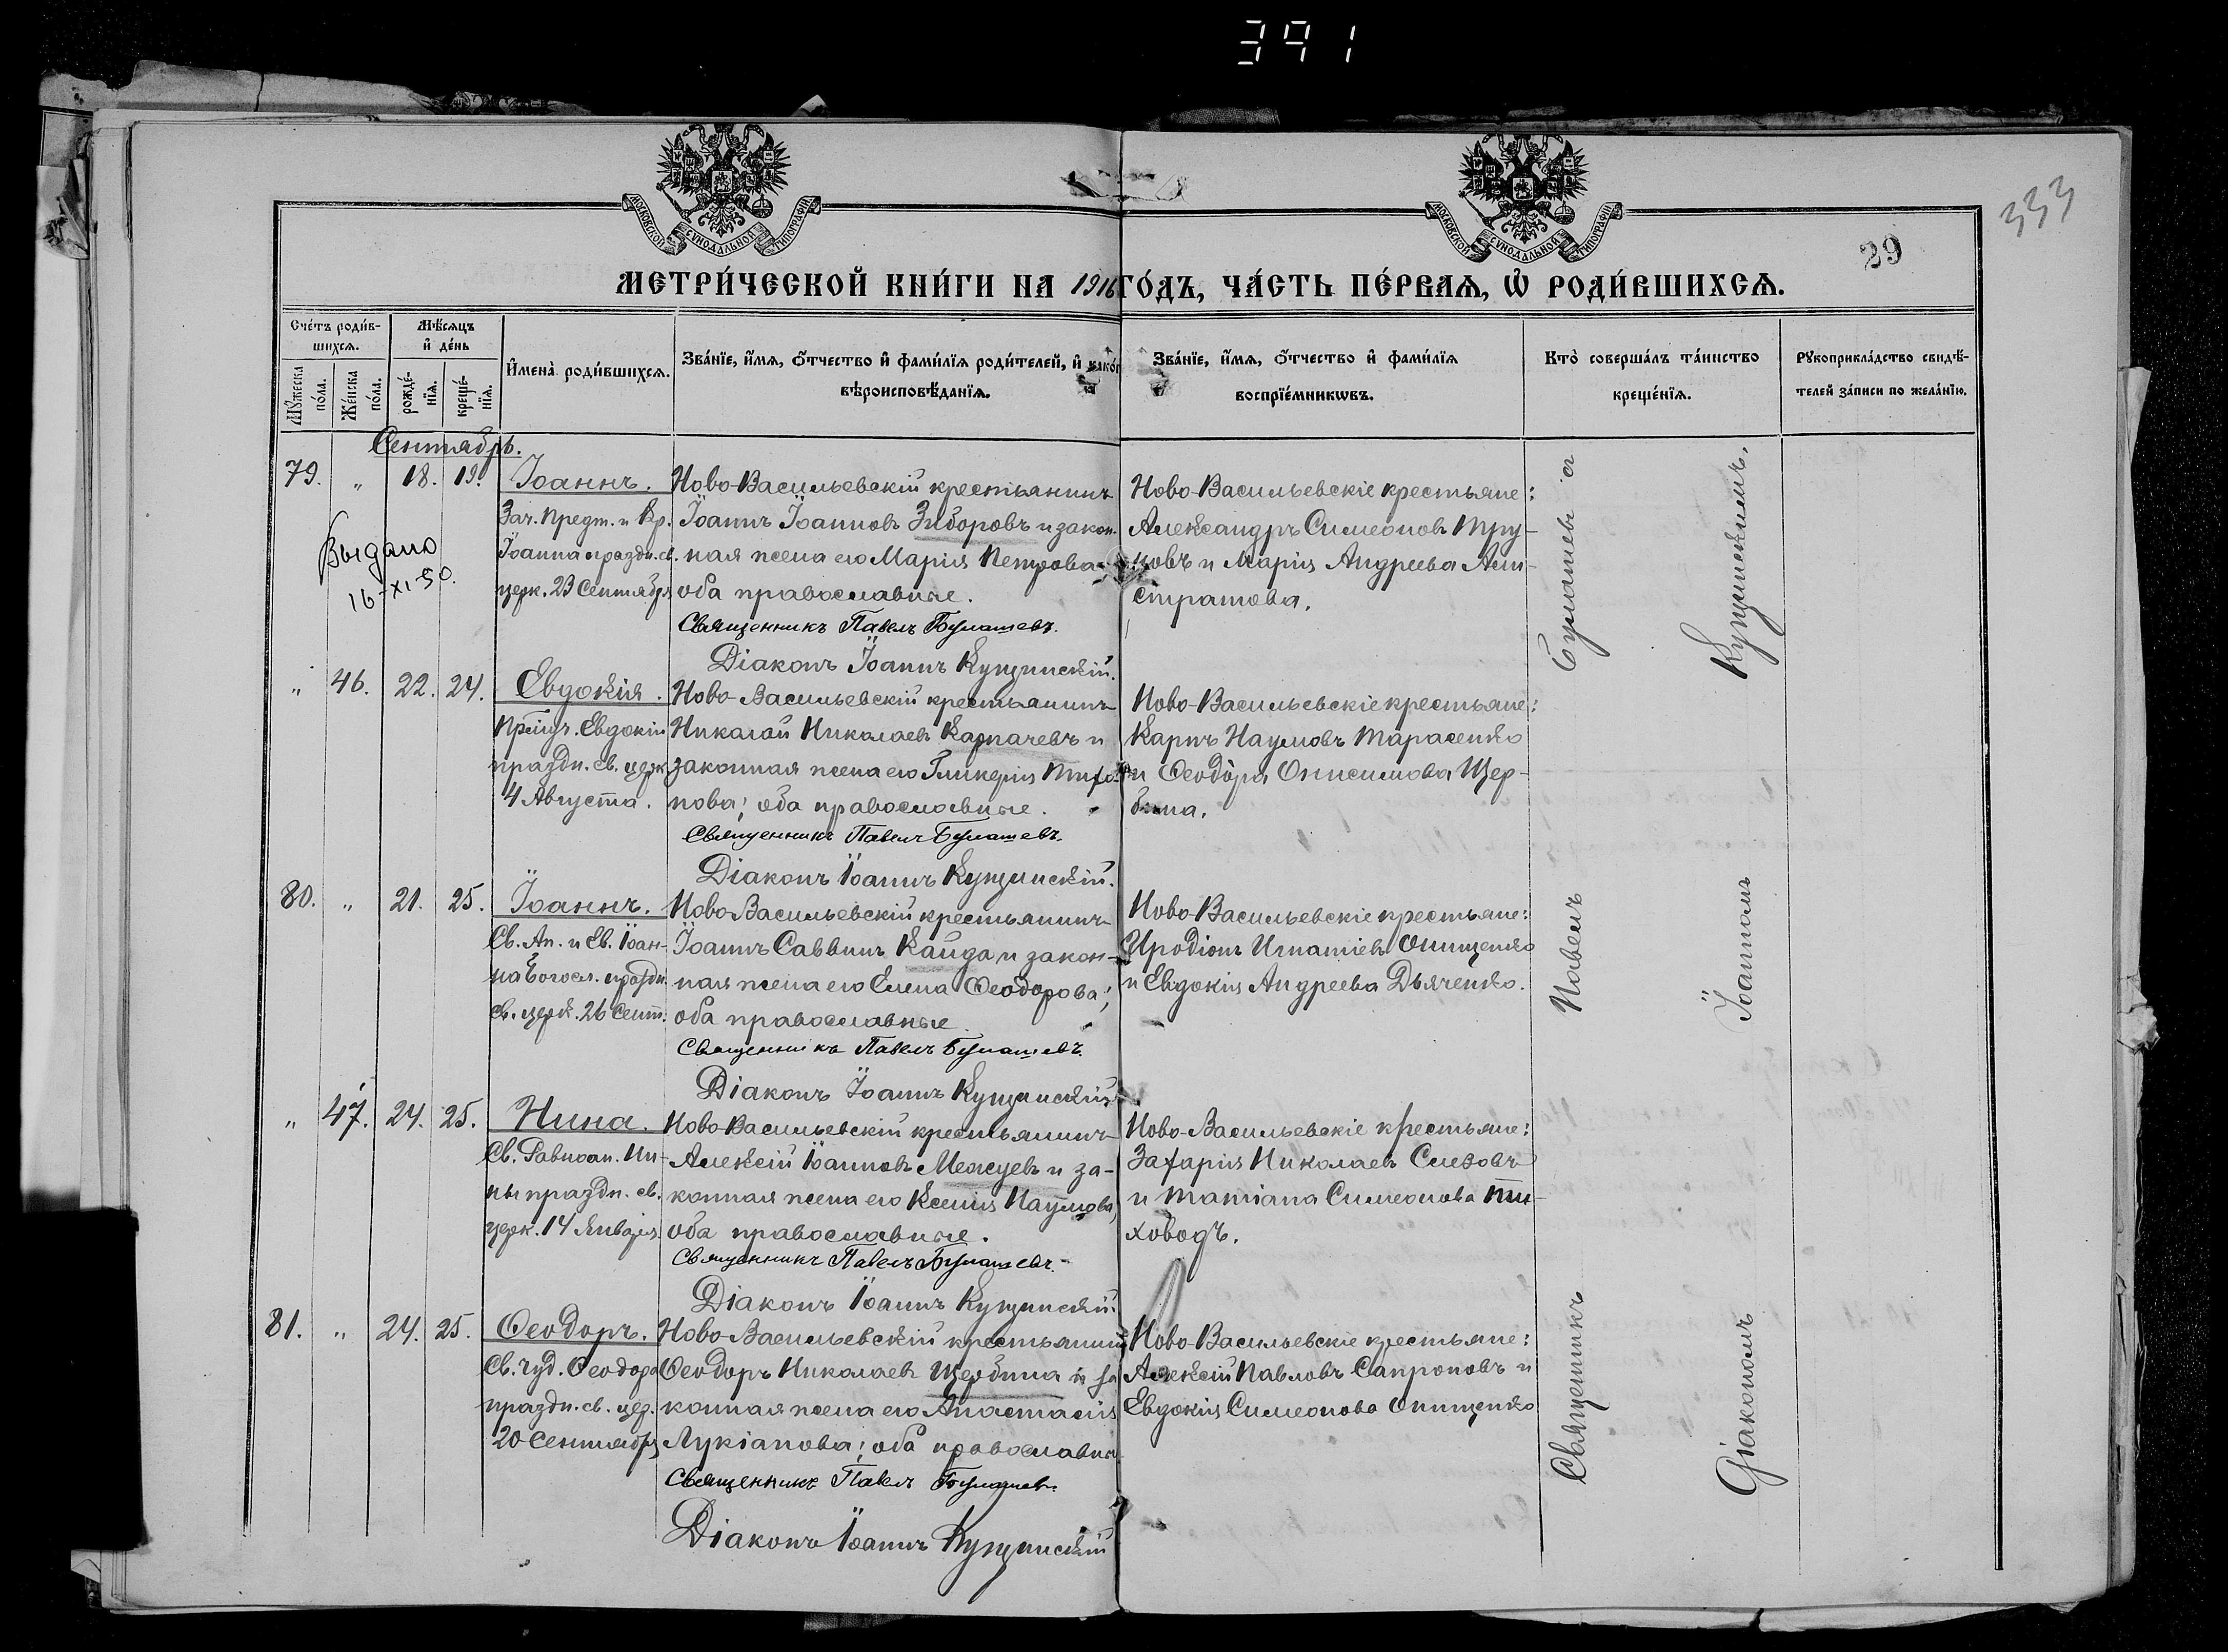 391
333
29
МОСКОВСКОЙ СѴНОДАЛЬНОЙ ТИПОГРАФІИ
МОСКОВСКОЙ СѴНОДАЛЬНОЙ ТИПОГРАФІИ
МЕТРИ́ЧЕСКОЙ КНИ́ГИ НА 1916 ГО́ДЪ, ЧА́СТЬ ПЕ́РВАѦ, Ѡ҆ РОДИ́ВШИХСѦ.
Сче́тъ роди́в-
шихсѧ.
Мѣ́сѧцъ
и҆ де́нь
Мꙋ́жеска
по́ла.
Же́нска
по́ла.
рожде́-
нїѧ.
креще́-
нїѧ.
И҆мена̀ роди́вшихсѧ.
Зва́нїе, и҆́мѧ, ѻ҆́тчество и҆ фами́лїѧ роди́телей, и҆ како́г
вѣроисповѣ́данїѧ.
Зва́нїе, и҆́мѧ, ѻ҆́тчество и҆ фами́лїѧ
воспрїе́мникѡвъ.
Кто̀ соверша́лъ та́инство
креще́нїѧ.
Рꙋкоприкла́дство свидѣ́-
телей за́писи по жела́нїю.
Сентябрь.
79. " 18. 19. Іоаннъ.
Зач. Предт. и Кр.
Іоанна праздн. св.
церк. 23 Сентября
Выдано
16-XI-50.
Ново-Васильевскій крестьянинъ
Іоаннъ Іоанновъ Зиборовъ и закон-
ная жена его Марія Петрова
оба православные.
Священникъ Павелъ Булашевъ.
Діаконъ Іоаннъ Кущинскій.
Ново-Васильевскіе крестьяне:
Александръ Симеоновъ Тру-
новъ и Марія Андреева Али-
стратова.
" 46. 22. 24. Евдокія.
Прпмч. Евдокіи
праздн. св. церк.
4 Августа.
Ново-Васильевскій крестьянинъ
Николай Николаевъ Карпачевъ и
законная жена его Гликерія Тихо-
нова; оба православные.
Священникъ Павелъ Булашевъ.
Діаконъ Іоаннъ Кущинскій.
Ново-Васильевскіе крестьяне:
Карпъ Наумовъ Тарасенко
и Ѳеодора Онисимова Щер-
бина.
80. " 21. 25. Іоаннъ.
Св. Ап. и Ев. Іоан-
на Богосл. праздн.
св. церк. 26 Сент.
Ново-Васильевскій крестьянинъ
Іоаннъ Саввинъ Кайда и закон-
ная жена его Елена Ѳеодорова;
оба православные.
Священникъ Павелъ Булашевъ.
Діаконъ Іоаннъ Кущинскій
Ново-Васильевскіе крестьяне:
Иродіонъ Игнатіевъ Онищенко
и Евдокія Андреева Дьяченко.
" 47. 24. 25. Нина.
Св. Равноап. Ни-
ны праздн. св.
церк. 14 Января.
Ново-Васильевскій крестьянинъ
Алексій Іоанновъ Межуевъ и за-
конная жена его Ксенія Наумова,
оба православные.
Священникъ Павелъ Булашевъ.
Діаконъ Іоаннъ Кущинскій.
Ново-Васильевскіе крестьяне:
Захарія Николаевъ Слезовъ
и Татіана Симеонова Ти-
ховодъ.
81. " 24. 25. Ѳеодоръ.
Св. чуд. Ѳеодора
праздн. св. цер.
20 Сентября
Ново-Васильевскій крестьянинъ
Ѳеодоръ Николаевъ Щербина и за
конная жена его Анастасія
Лукіанова; оба православны
Священникъ Павелъ Булашевъ.
Діаконъ Іоаннъ Кущинскій
Ново-Васильевскіе крестьяне:
Алексій Павловъ Сапроновъ и
Евдокія Симеонова Онищенко
Священникъ Павелъ Булашевъ съ
Діакономъ Іоанномъ Кущинскимъ.